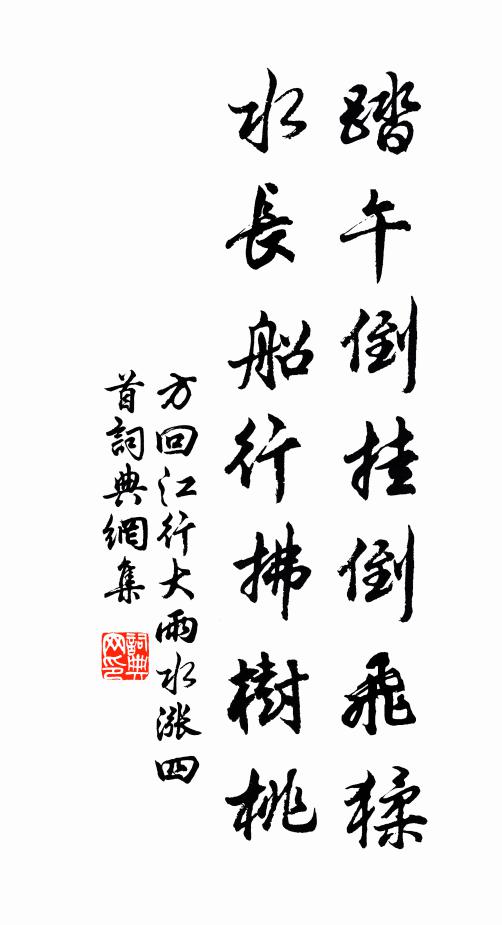 踏午倒挂倒飛猱
水長船行拂樹桃
方回江行大雨水漲四
首詞典網集
詞典
网印